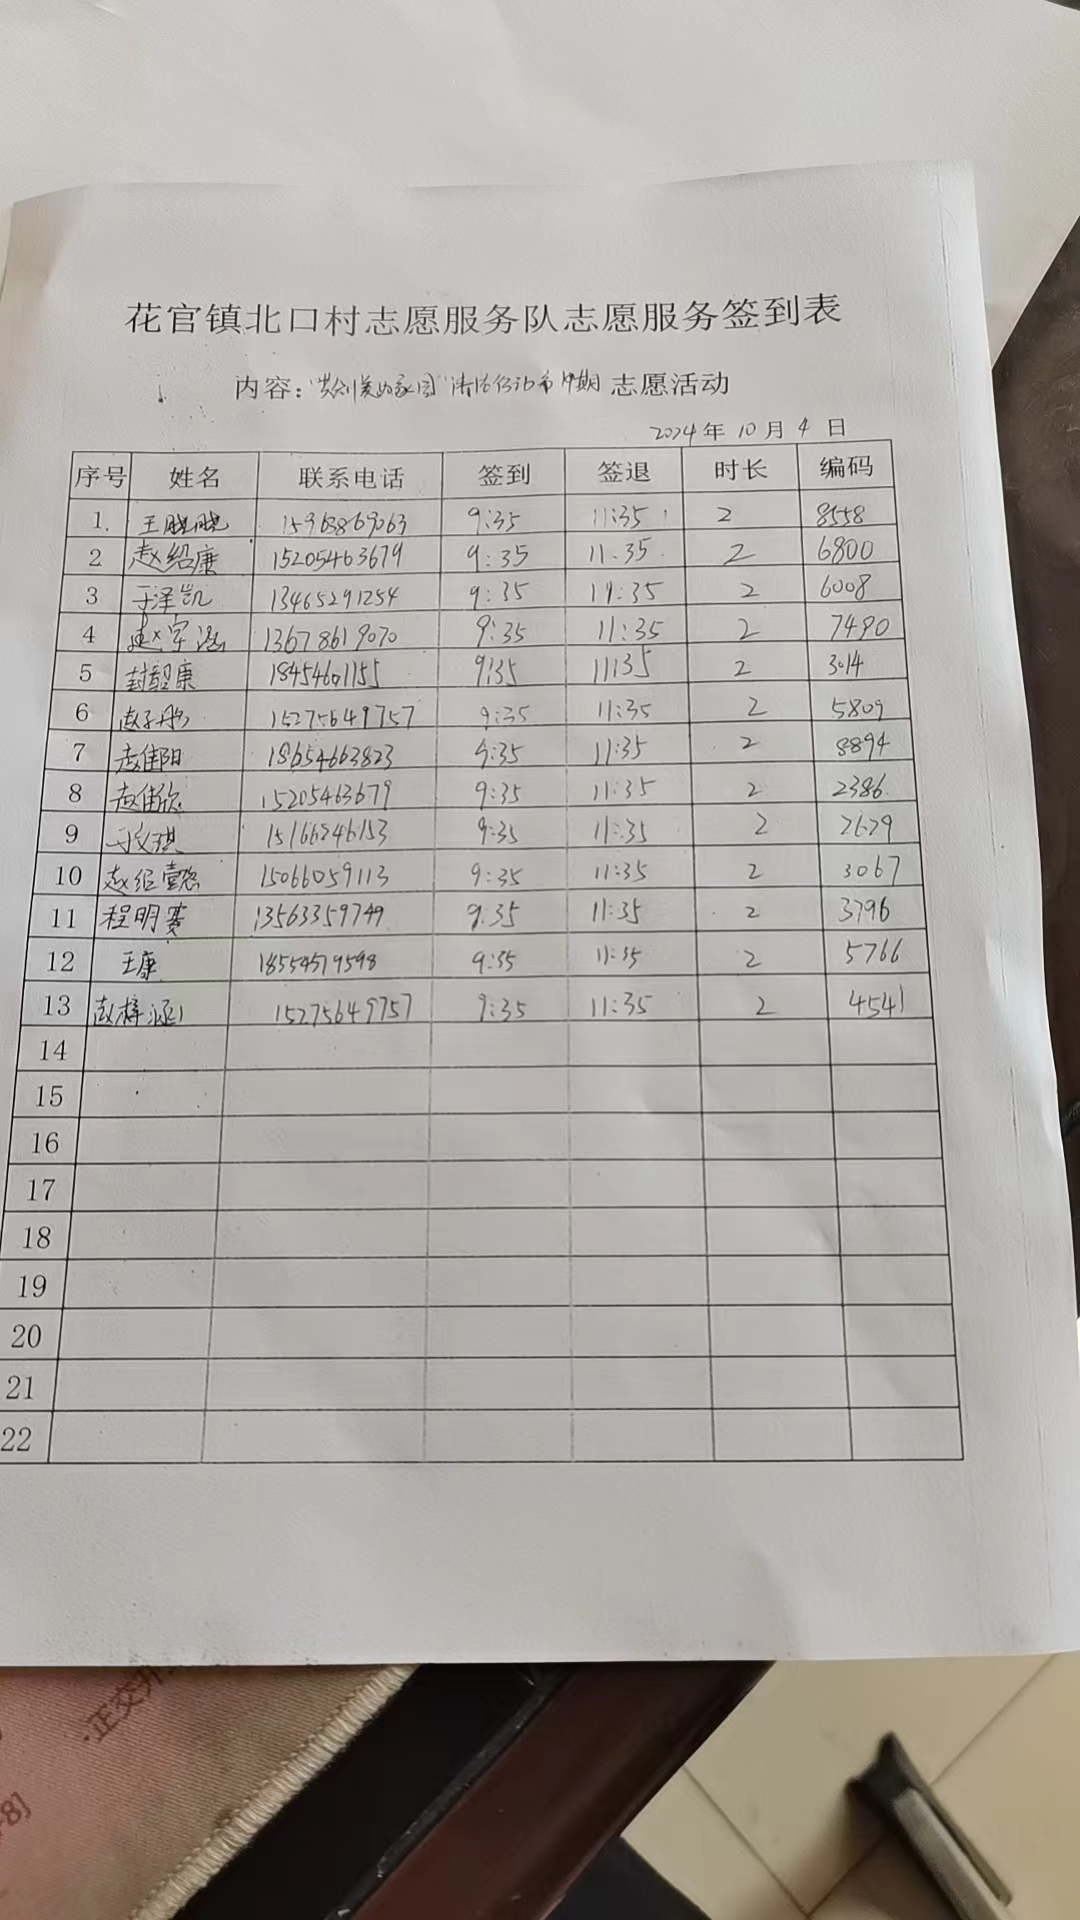 花官镇北口村志愿服务队志愿服务签到表
内容：“共创美好家园”清洁行动 第19期 志愿活动
2024年10月4日
序号 姓名 联系电话 签到 签退 时长 编码
1. 王晓晓 15968869063 9:35 11:35 2 8558
2 赵绍康 15205463679 9:35 11.35. 2 6800
3 于泽凯 13465291254 9:35 11:35 2 6008
4 13678619070 9:35 11:35 2 7490
5 封醒康 18454601155 9:35 11:35 2 3014
6 15275649757 9:35 11:35 2 5809
7 赵佳阳 18654663823 9:35 11:35 2 8894
8 赵佳欣 15205463679 9:35 11:35 2 2386
9 15166246153 9:35 11:35 2 2629
10 15066059113 9:35 11:35 2 3067
11 程明赛 13563359749 9.35 11:35 2 3796
12 王康 18554579598 9:35 11:35 2 5766
13 赵梓涵 15275649757 9:35 11:35 2 4541
14
15
16
17
18
19
20
21
22
正交
8]